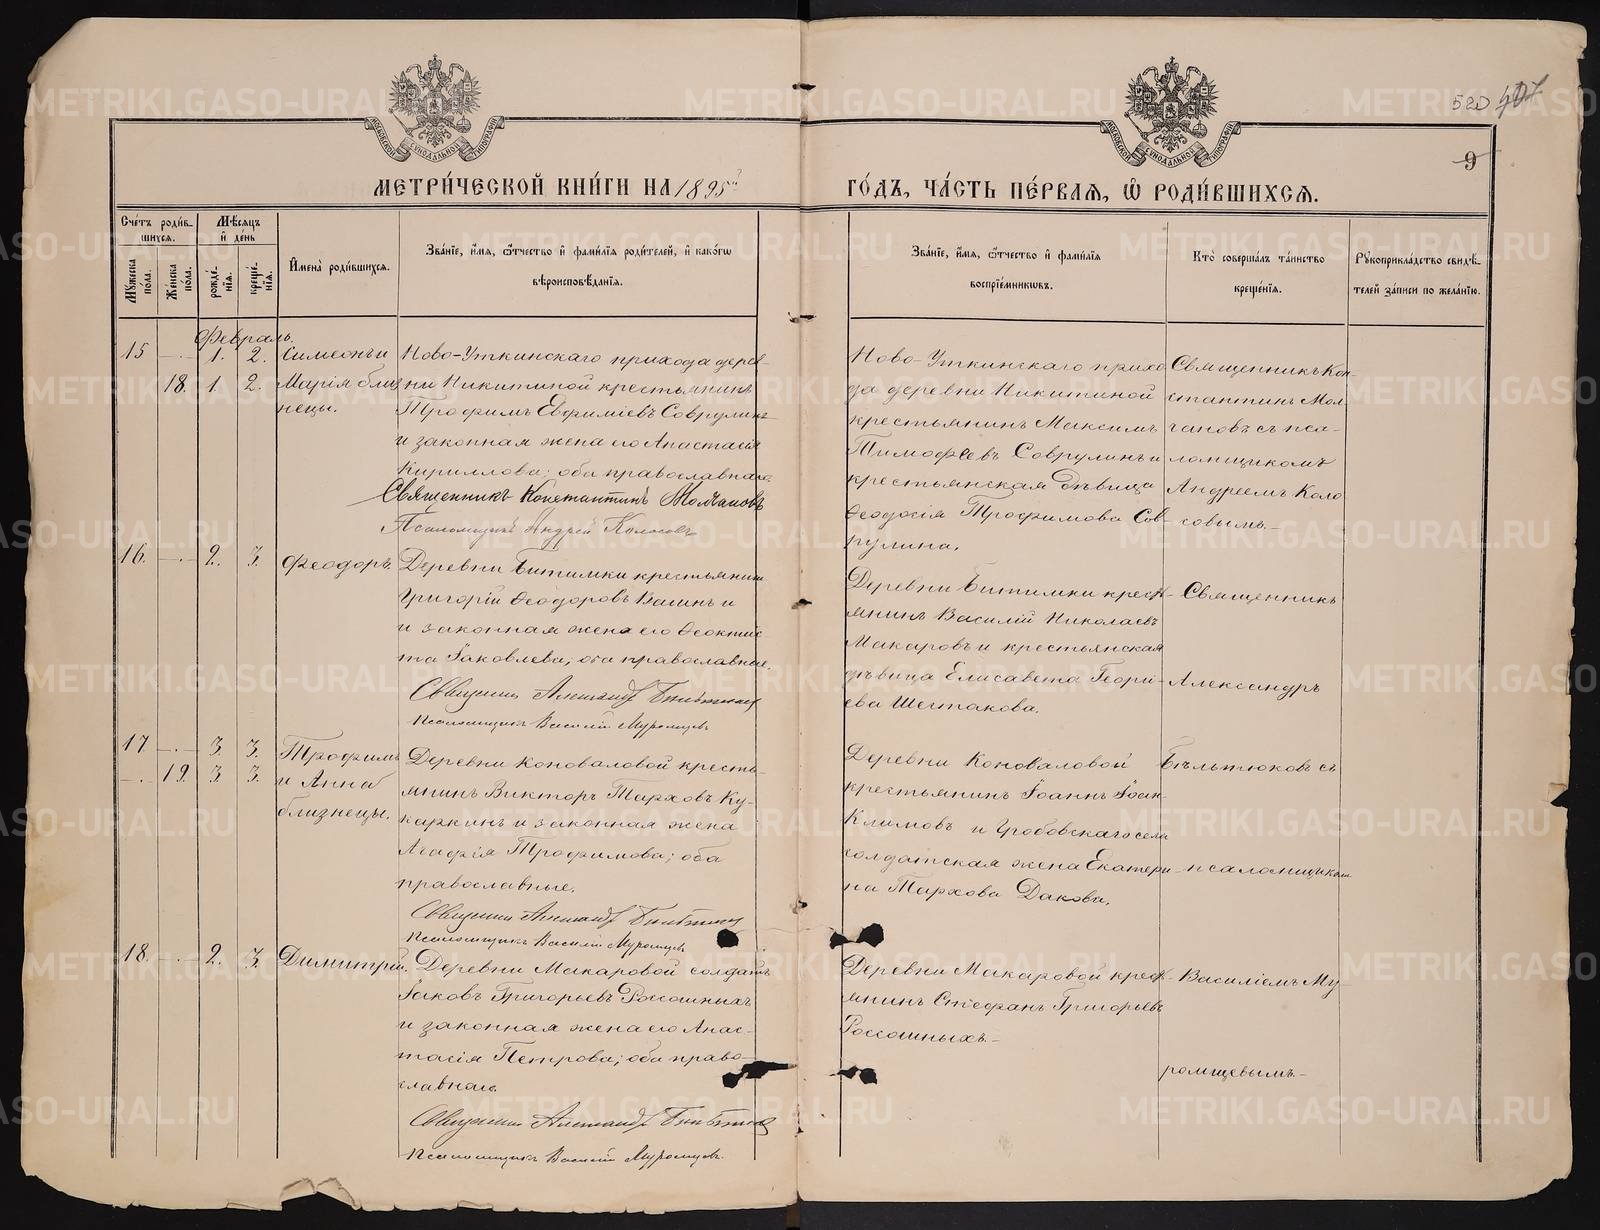 520 407
9
МОСКОВСКОЙ СѴНОДАЛЬНОЙ ТИПОГРАФІИ
МОСКОВСКОЙ СѴНОДАЛЬНОЙ ТИПОГРАФІИ
МЕТРИ́ЧЕСКОЙ КНИ́ГИ НА 1895й
ГО́ДЪ, ЧА́СТЬ ПЕ́РВАЯ, Ѿ РОДИ́ВШИХСЯ.
Сче́тъ роди́в-
шихся.
Мꙋжеска по́ла.
Же́нска по́ла.
Мѣ́сяцъ
и҆ де́нь
рожде́-
нїя.
креще́-
нїя.
И҆мена̀ роди́вшихся.
Зва́нїе, и҆́мя, ѻ҆́тчество и҆ фами́лїя роди́телей, и҆ како́гѡ
вѣроисповѣ́данїя.
Зва́нїе, и҆́мя, ѻ҆́тчество и҆ фами́лїя
воспрїе́мниковъ.
Кто̀ соверша́лъ та́инство
креще́нїя.
Рꙋкоприкла́дство свидѣ́-
телей за́писи по жела́нїю.
Февраль.
15 — 1. 2. Симеонъ и
18. 1. 2. Марія близ
нецы.
Ново-Уткинскаго прихода дерев-
ни Никитиной крестьянинъ
Трофимъ Евфиміевъ Соврулинъ
и законная жена его Анастасія
Кириллова; оба православнаго.
Священникъ Константинъ Молчановъ
Псаломщикъ Андрей Колосовъ
Ново-Уткинскаго прихо
да деревни Никитиной
крестьянинъ Максимъ
Тимофеевъ Соврулинъ и
крестьянская дѣвица
Ѳеодосія Трофимова Сов-
рулина.
Священникъ Кон-
стантинъ Мол
чановъ съ пса-
ломщикомъ
Андреемъ Коло
совымъ.-
16. — 2. 3. Феодоръ.
Деревни Битимки крестьянинъ
Григорій Ѳеодоровъ Вагинъ и
и законная жена его Ѳеоктис-
та Іаковлева; оба православные.
Священникъ Александръ Бѣльтюковъ
Псаломщикъ Василій Муромцевъ
Деревни Битимки крест-
янинъ Василій Николаевъ
Макаровъ и крестьянская
дѣвица Елисавета Георгі-
ева Шестакова.
Священникъ
Александръ
17 — 3. 3. Трофимъ
— 19. 3. 3. и Анна
близнецы.
Деревни Коноваловой кресть-
янинъ Викторъ Тарховъ Ку-
каркинъ и законная жена
Агафія Трофимова; оба
православные.
Священникъ Александръ Бѣльтюковъ
Псаломщикъ Василій Муромцевъ
Деревни Коноваловой
крестьянинъ Іоаннъ Іоан-
Климовъ и Гробовскаго села
солдатская жена Екатери
на Тархова Дакова.
Бѣльтюковъ съ
псаломщикомъ
18. — 2. 3. Димитрій.
Деревни Макаровой солдатъ
Іаковъ Григорьевъ Россошныхъ
и законная жена его Анас-
тасія Петрова; оба право-
славнаго.
Священникъ Александръ Бѣльтюковъ
Псаломщикъ Василій Муромцевъ.
Деревни Макаровой крест-
янинъ Стефанъ Григорьевъ
Россошныхъ.-
Василіемъ Му-
ромцевымъ.-
METRIKI.GASO-URAL.RU